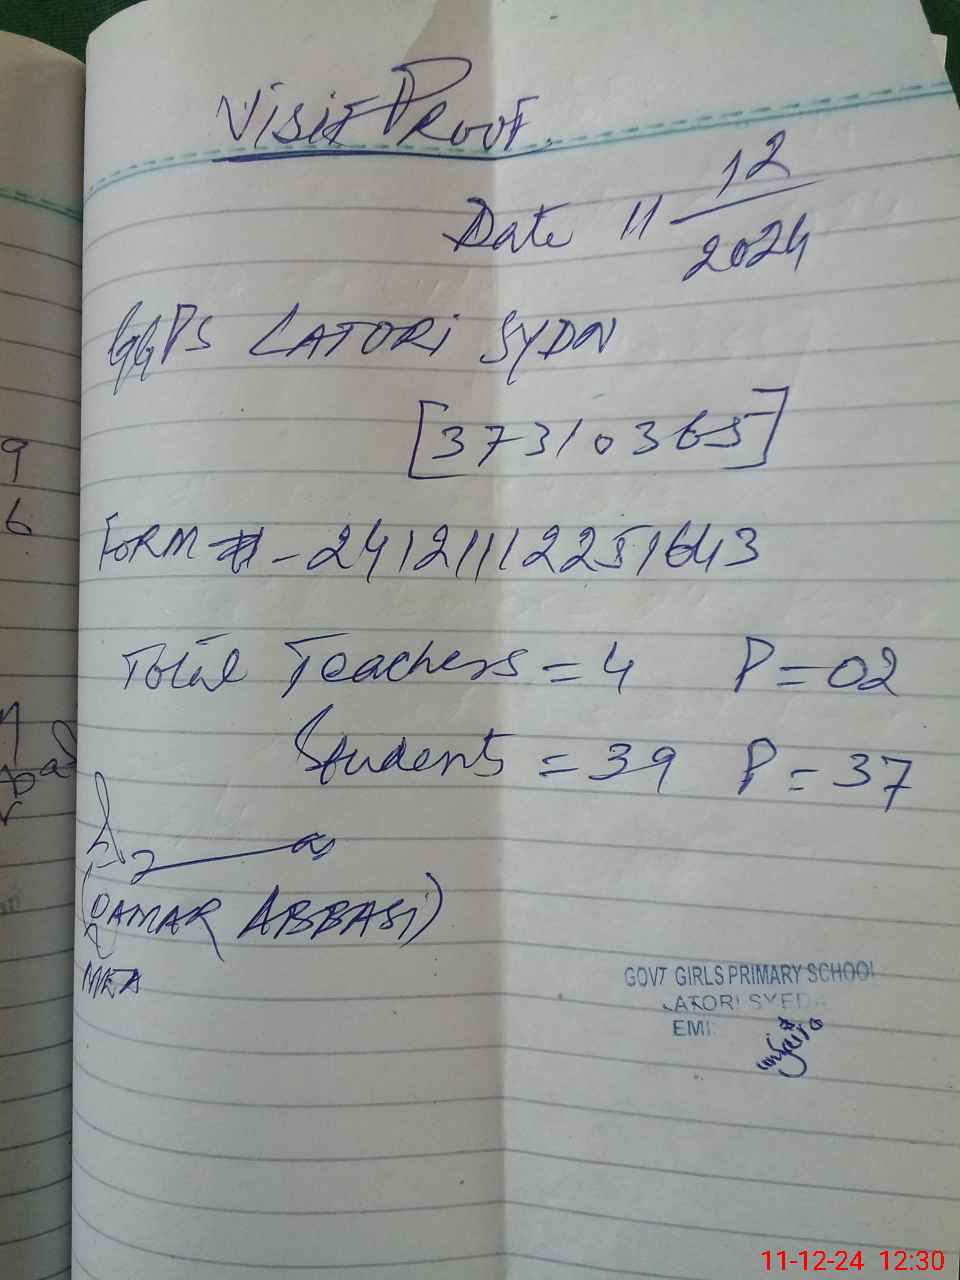 Visit Proof.
Date 11 12/2024
GGPS LATORI SYDN
[37310365]
FORM # - 24121112251643
Total Teachers = 4 P = 02
Students = 39 P = 37
(QAMAR ABBASI)
MEA
GOVT GIRLS PRIMARY SCHOOL
LATORI SYED
EMI
9
6
11-12-24 12:30